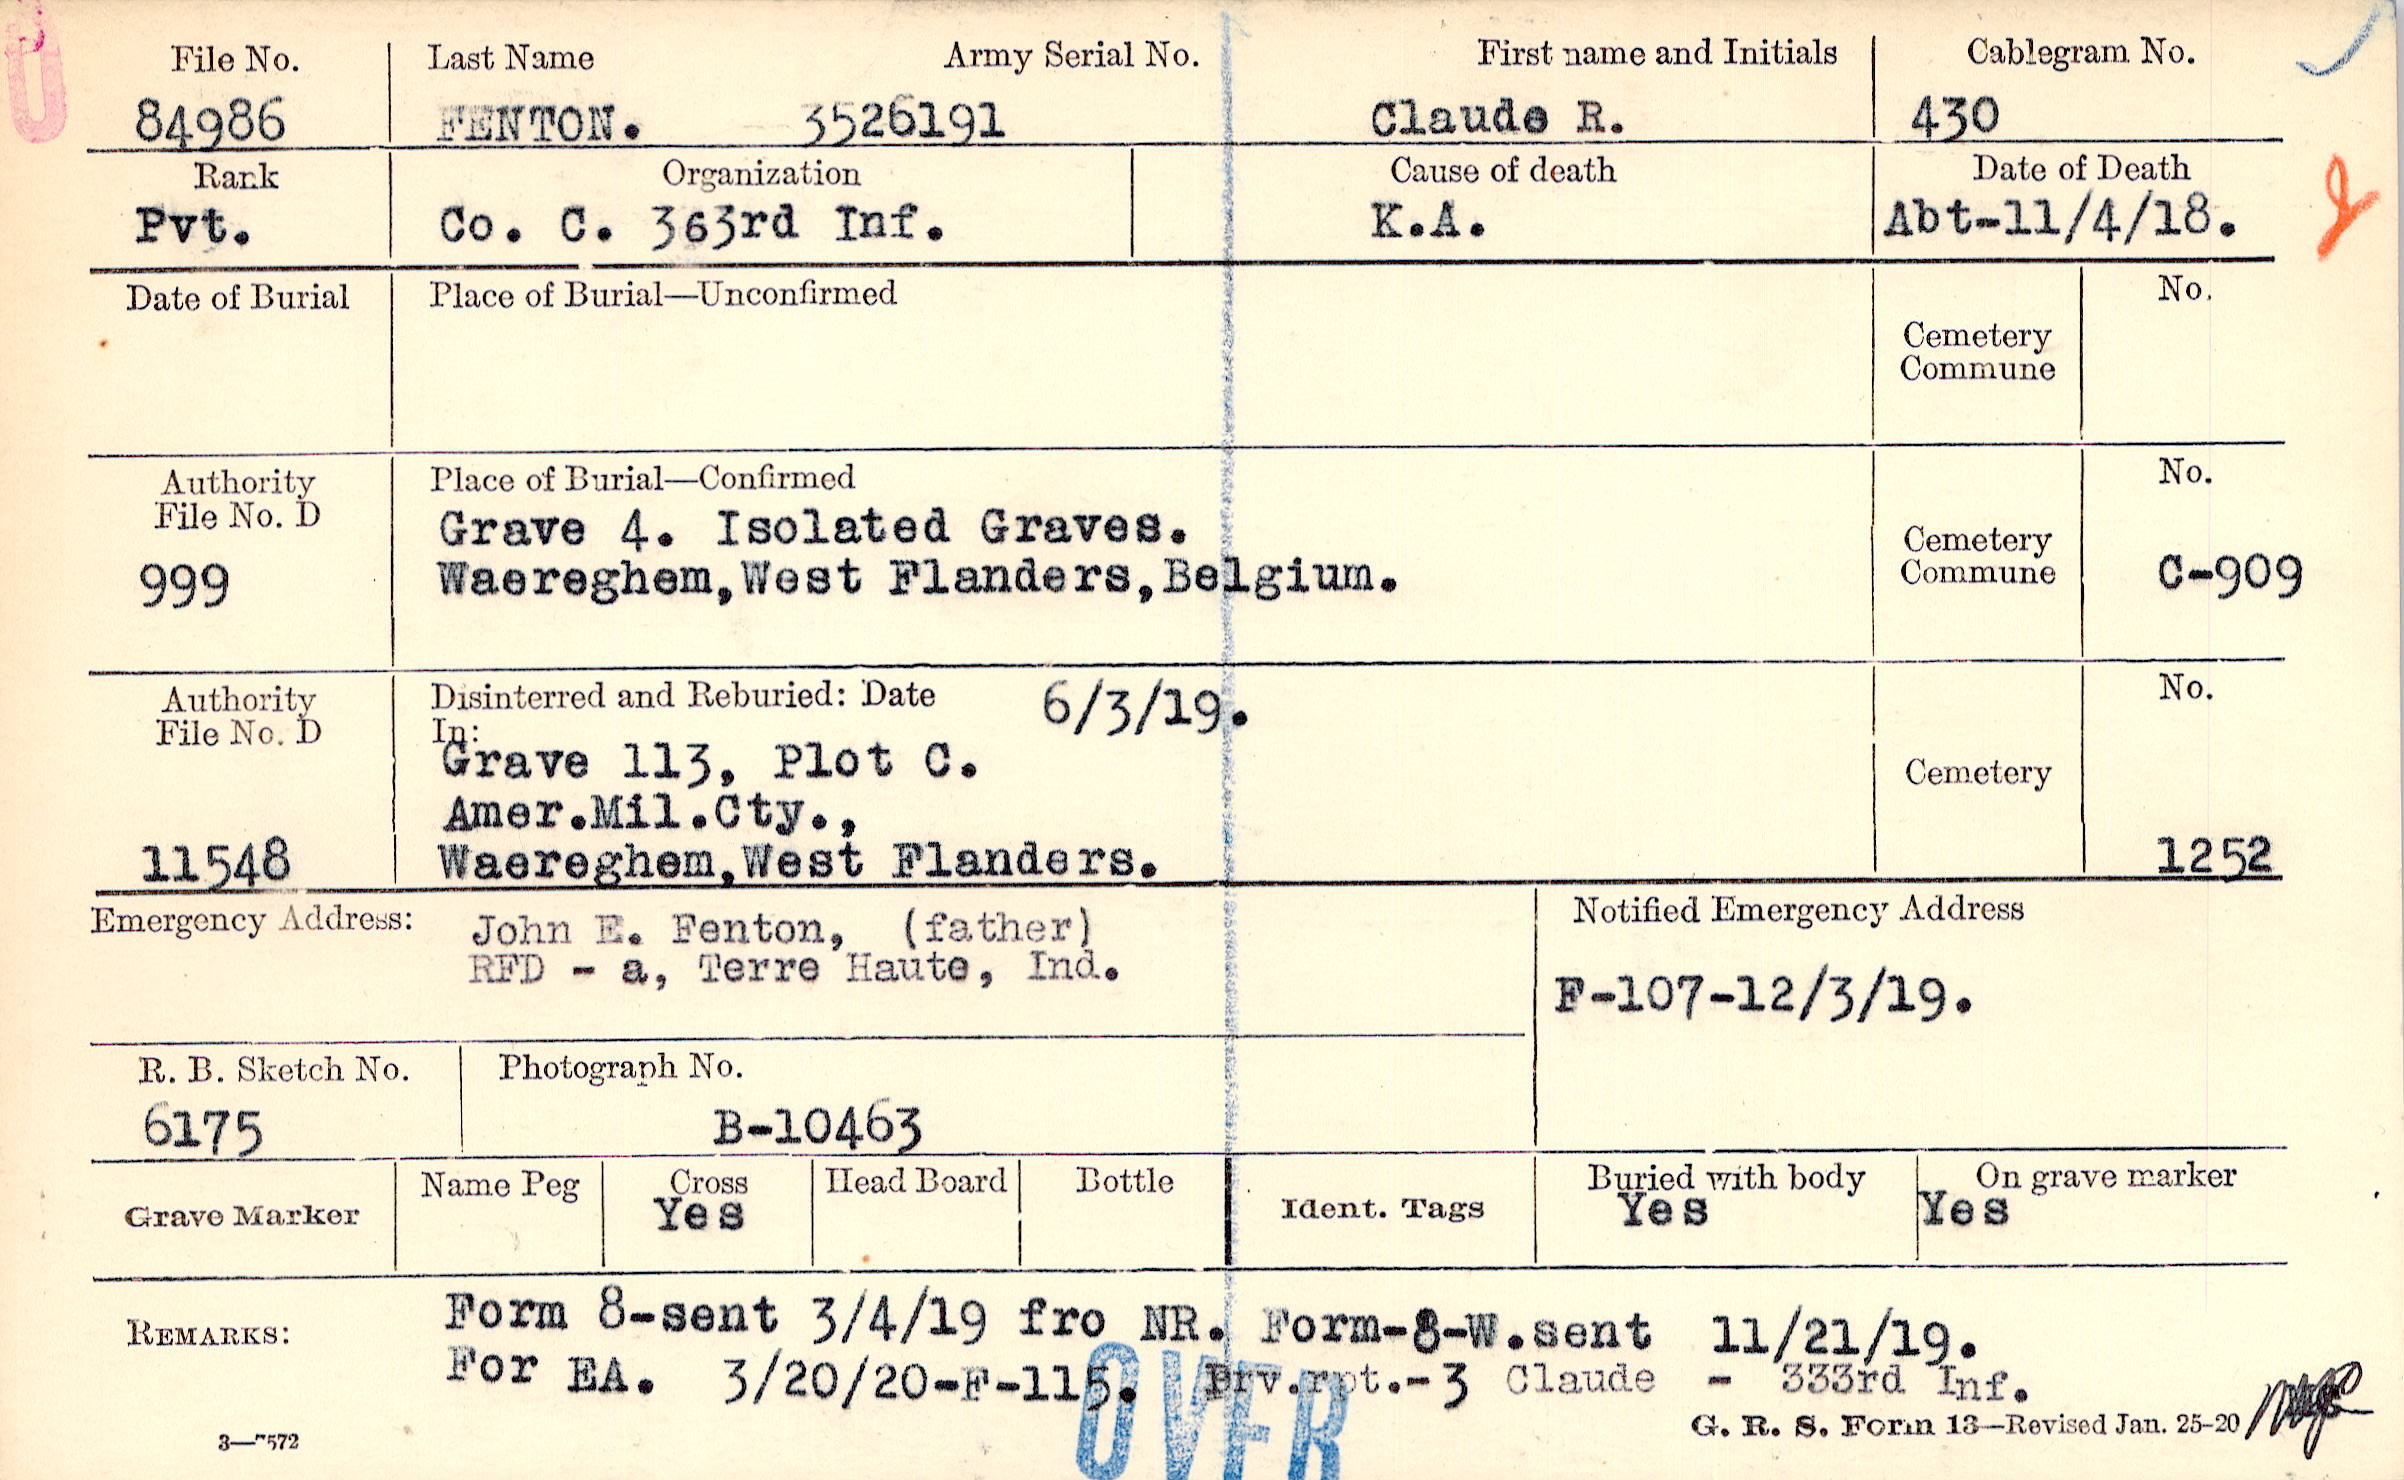 File No. Last Name Army Serial No. First name and Initials Cablegram No.
84986 FENTON. 3526191 Claude R. 430
Rank Organization Cause of death Date of Death
Pvt. Co. C. 363rd Inf. K.A. Abt-11/4/18.
Date of Burial Place of Burial—Unconfirmed No.
Cemetery
Commune
Authority Place of Burial—Confirmed No.
File No. D
Grave 4. Isolated Graves.
Cemetery
Commune
999 Waereghem,West Flanders,Belgium. C-909
Authority Disinterred and Reburied: Date 6/3/19. No.
File No. D In:
Grave 113, Plot C. Cemetery
Amer.Mil.Cty.,
11548 Waereghem,West Flanders. 1252
Emergency Address: John E. Fenton, (father) Notified Emergency Address
RFD - a, Terre Haute, Ind.
F-107-12/3/19.
R. B. Sketch No. Photograph No.
6175 B-10463
Grave Marker Name Peg Cross Head Board Bottle Ident. Tags Buried with body On grave marker
Yes Yes Yes
REMARKS: Form 8-sent 3/4/19 fro NR. Form-8-W.sent 11/21/19.
For EA. 3/20/20-F-115. Prv.rpt.-3 Claude - 333rd Inf.
OVER
3—7572 G. R. S. Form 13—Revised Jan. 25-20